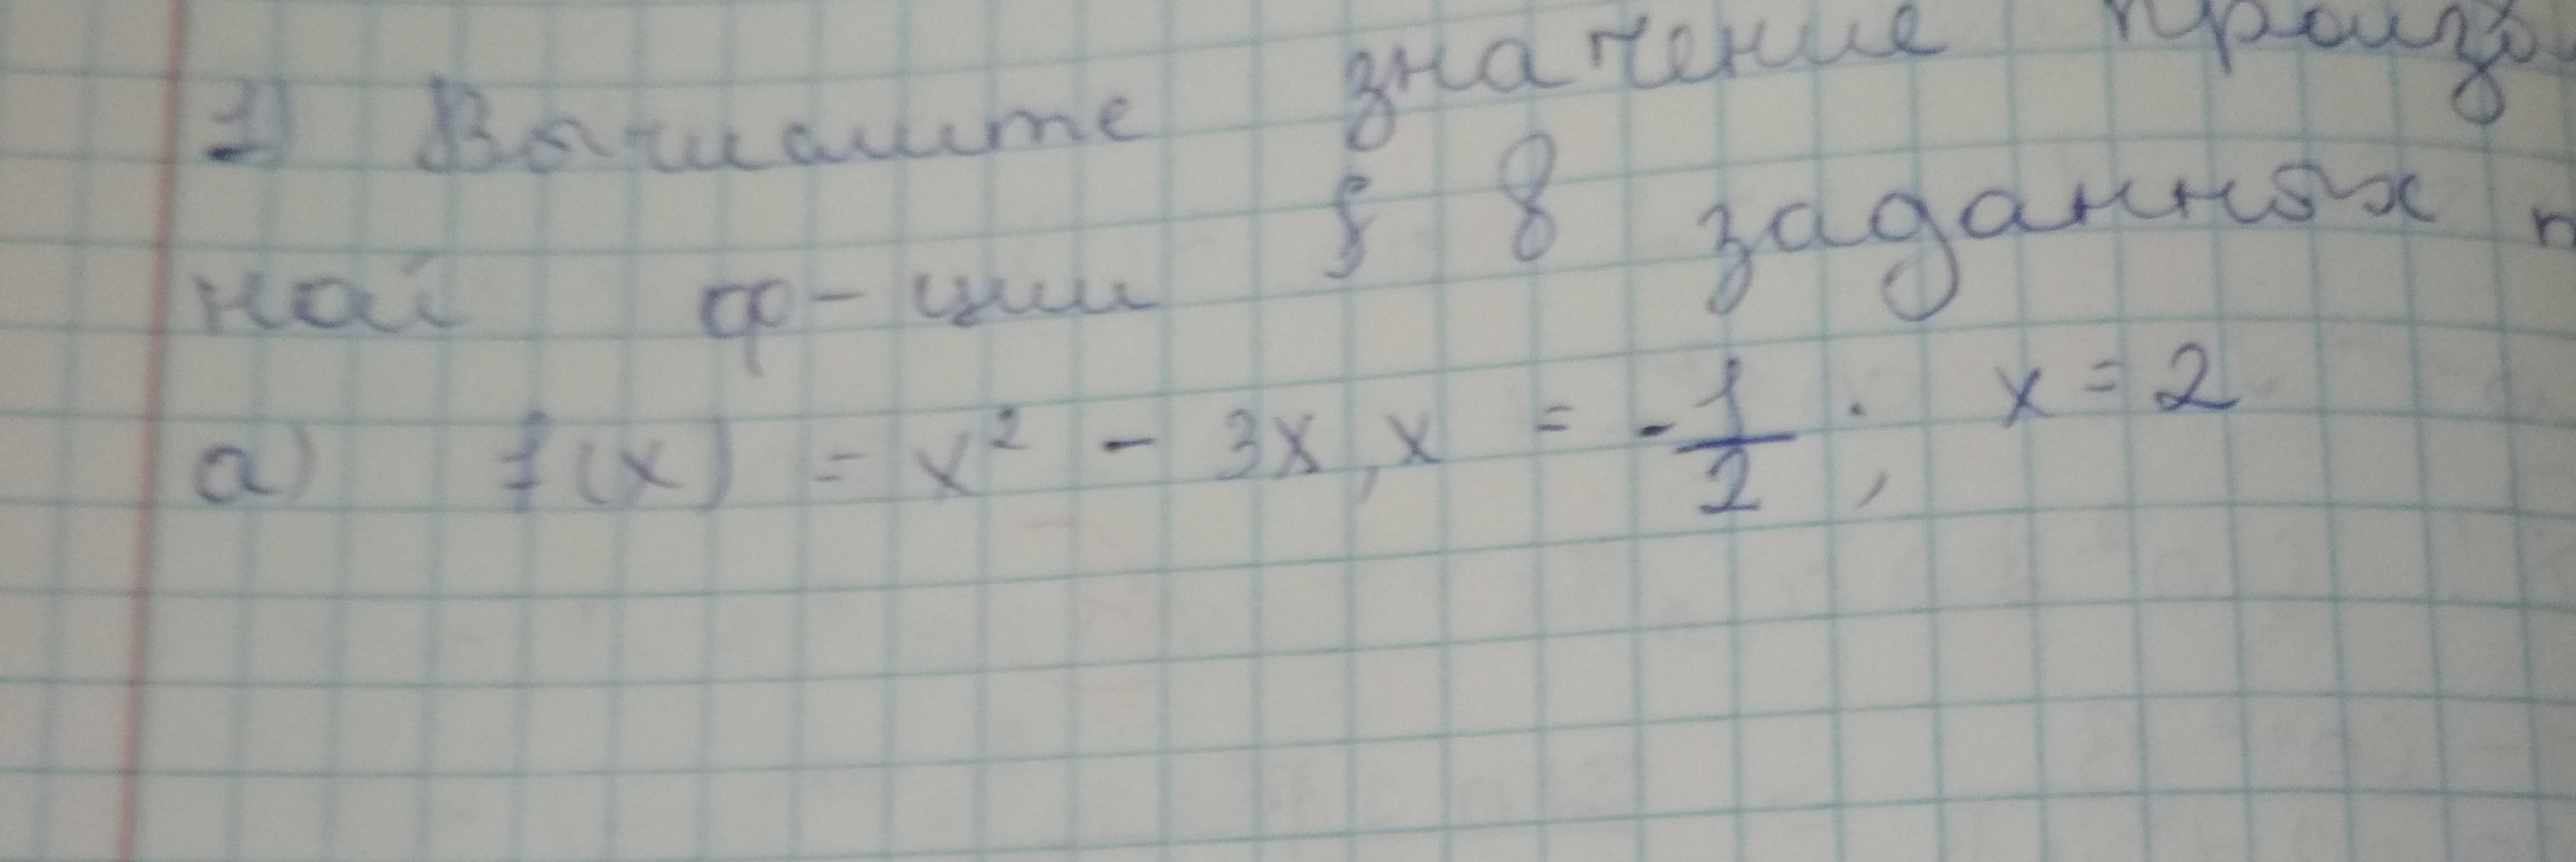 1) Вычислите значение произв
ной ф-ции f в заданных
а) f(x) = x² - 3x, x = -1/2; x = 2